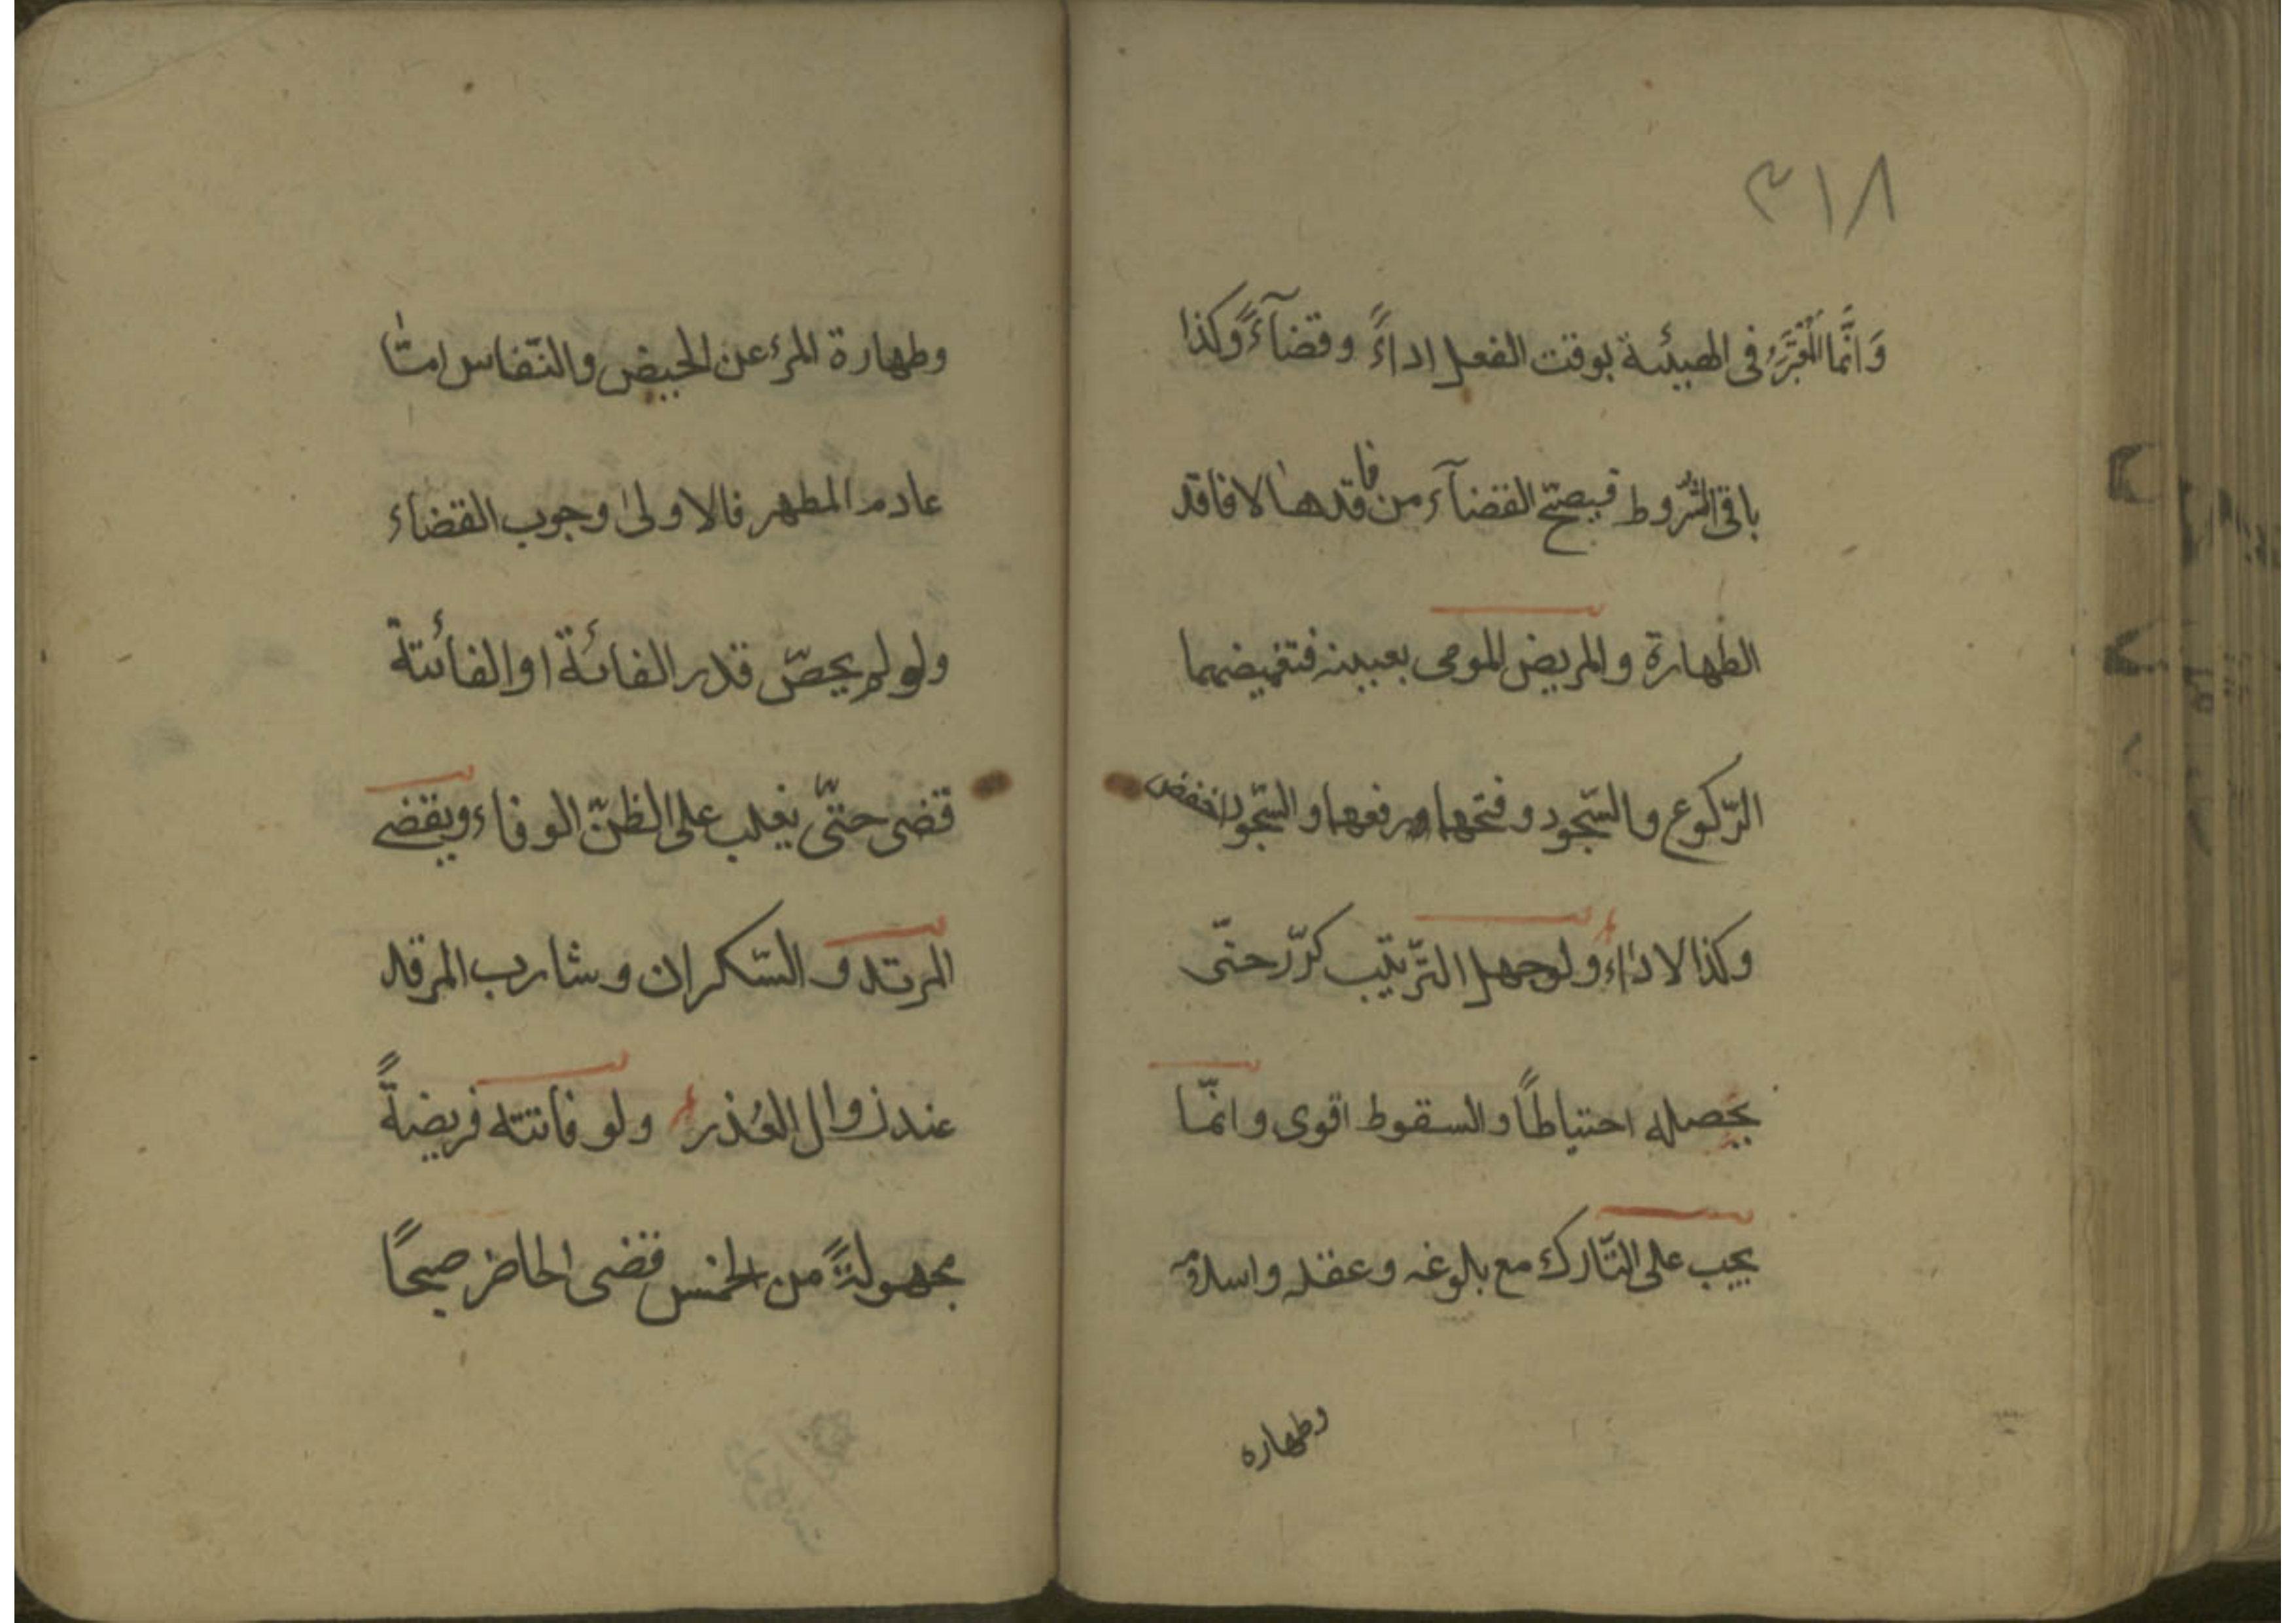 ٣١٨
وَانَّما المُعْتَبَرُ فى الهيئة بوقت الفعل اداءً وقضآءً وكذا
باقى الشّروط فيصحّ القضآء من فاقدها لا فاقد
الطهارة والمريض المومى بعينه فتغميضهما
الرّكوع والسّجود وفتحهما ورفعهما والسّجود اخفض
وكذا الاداء ولوجهل التّرتيب كرّر حتّى
يحصله احتياطاً والسقوط اقوى وانّما
يجب على التّارك مع بلوغه وعقله واسلامه
وطهاره
وطهارة المرء عن الحيض والنّفاس امّا
عادم المطهر فالاولىٰ وجوب القضاء
ولو لم يحصّ قدر الفائة او الفائتة
قضى حتّى يغلب على الظنّ الوفاء ويقضى
المرتد والسّكران وشارب المرقد
عند زوال العُذر ولو فاتته فريضةً
مجهولةً من الخمس قضى الحاضر صبحاً